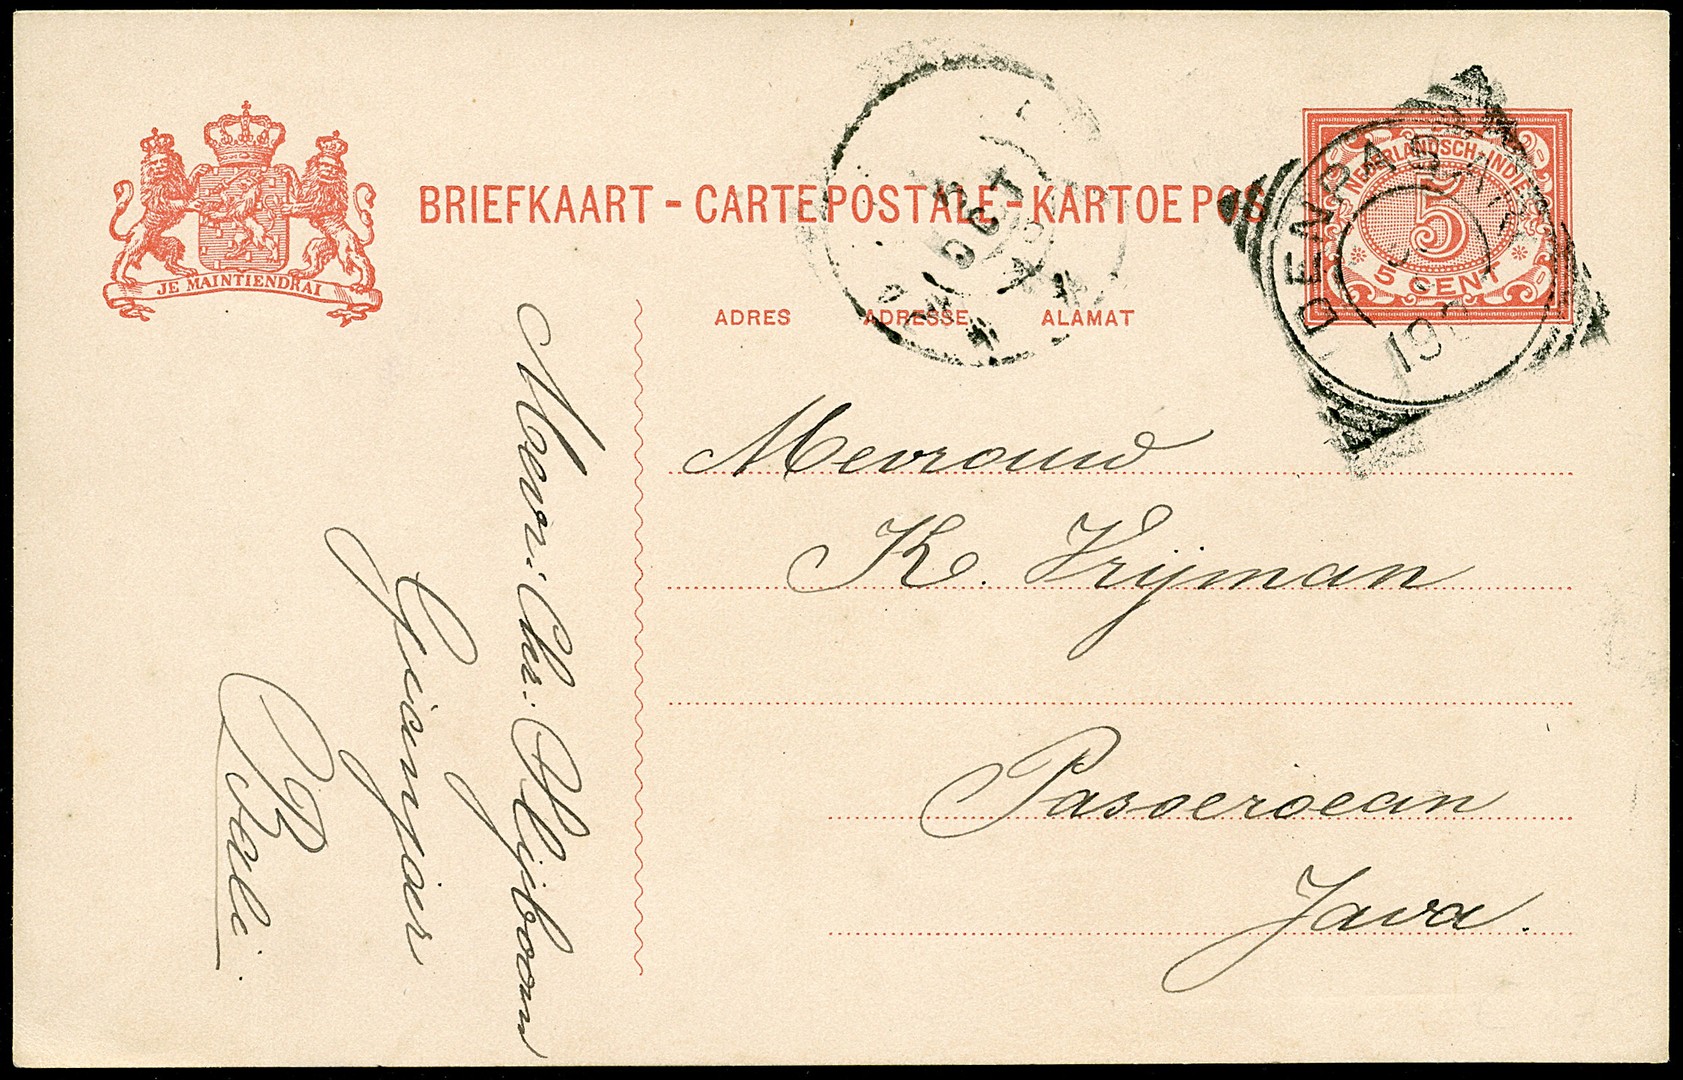 JE MAINTIENDRAI
BRIEFKAART - CARTE POSTALE - KARTOE POS
ADRES ADRESSE ALAMAT
NEDERLANDSCH-INDIË
5
5 CENT
DENPASAR
OCT
Mevrouw
K. Vrijman
Pasoeroean
Java.
Mevr: Chr. Slijboom
Gianjar
Bali.